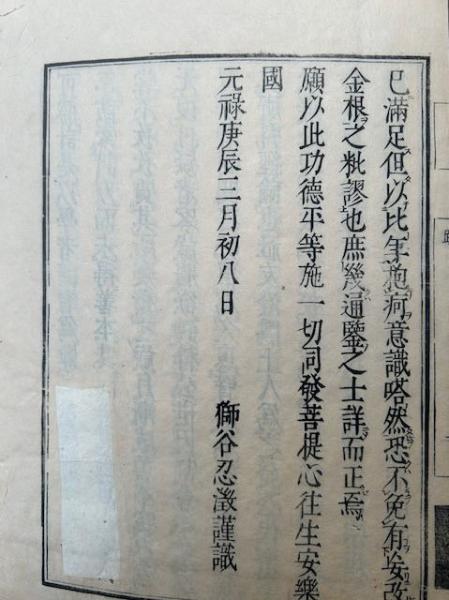 已滿足但以比年抱痾意識嗒然恐不免有妄改
金根之紕謬也庶幾通鑒之士詳而正焉
願以此功德平等施一切同發菩提心往生安樂
國
元祿庚辰三月初八日　獅谷忍澂謹識